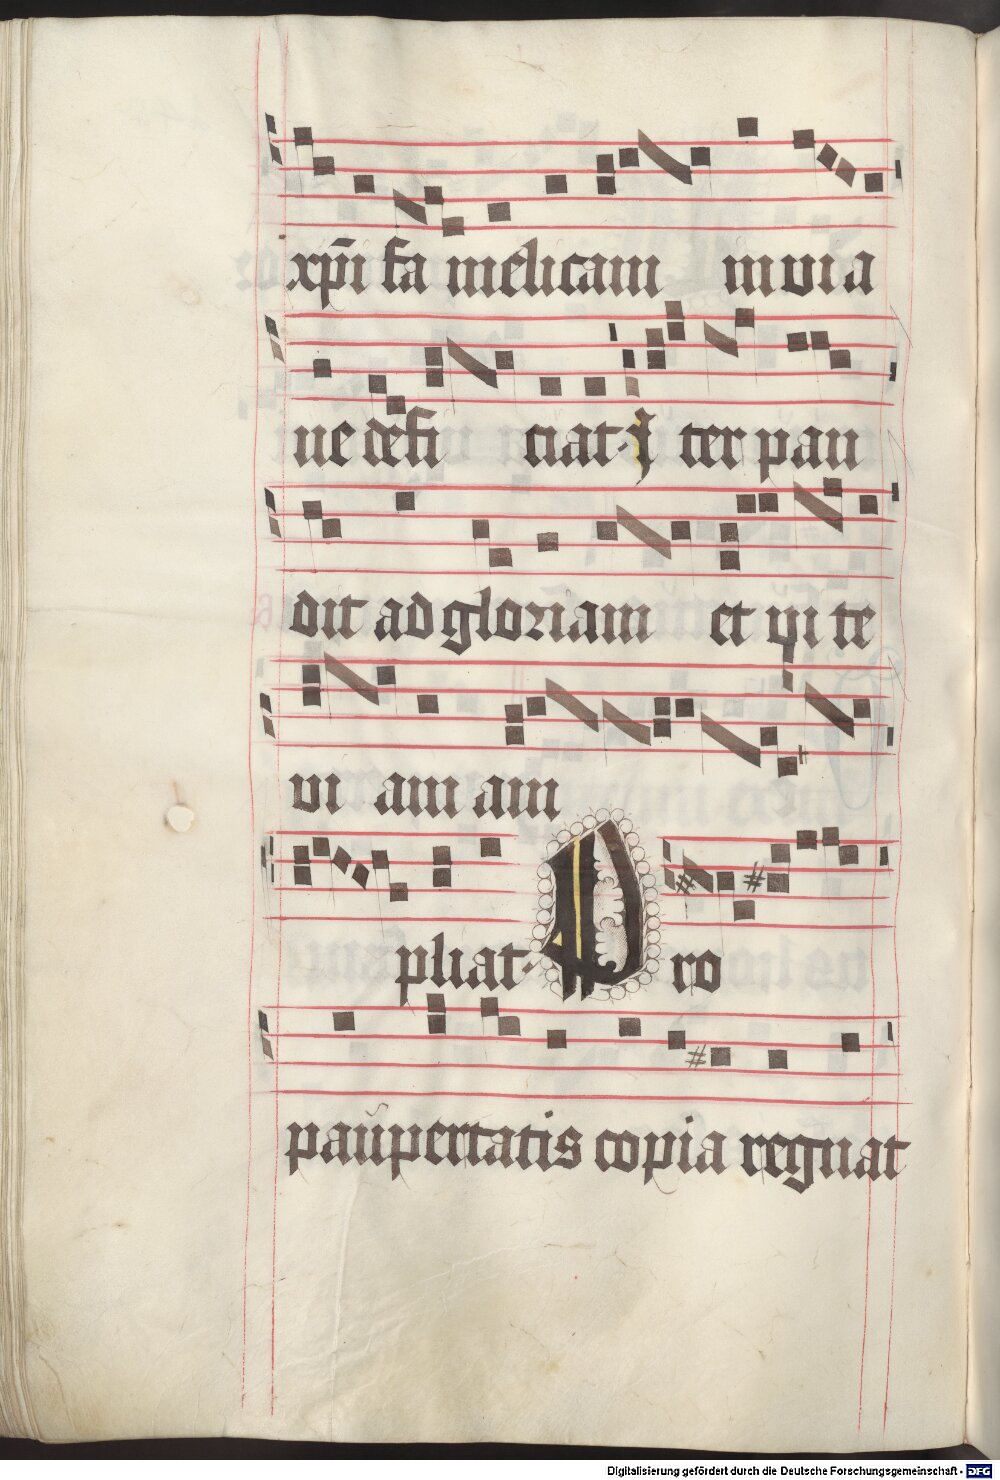 xp̄i fa melicam in via
ne defi ciat · I ter pau
dit ad gloriam et vi te
vi am am
pliat · P ro
paupertatis copia regnat
Digitalisierung gefördert durch die Deutsche Forschungsgemeinschaft - DFG